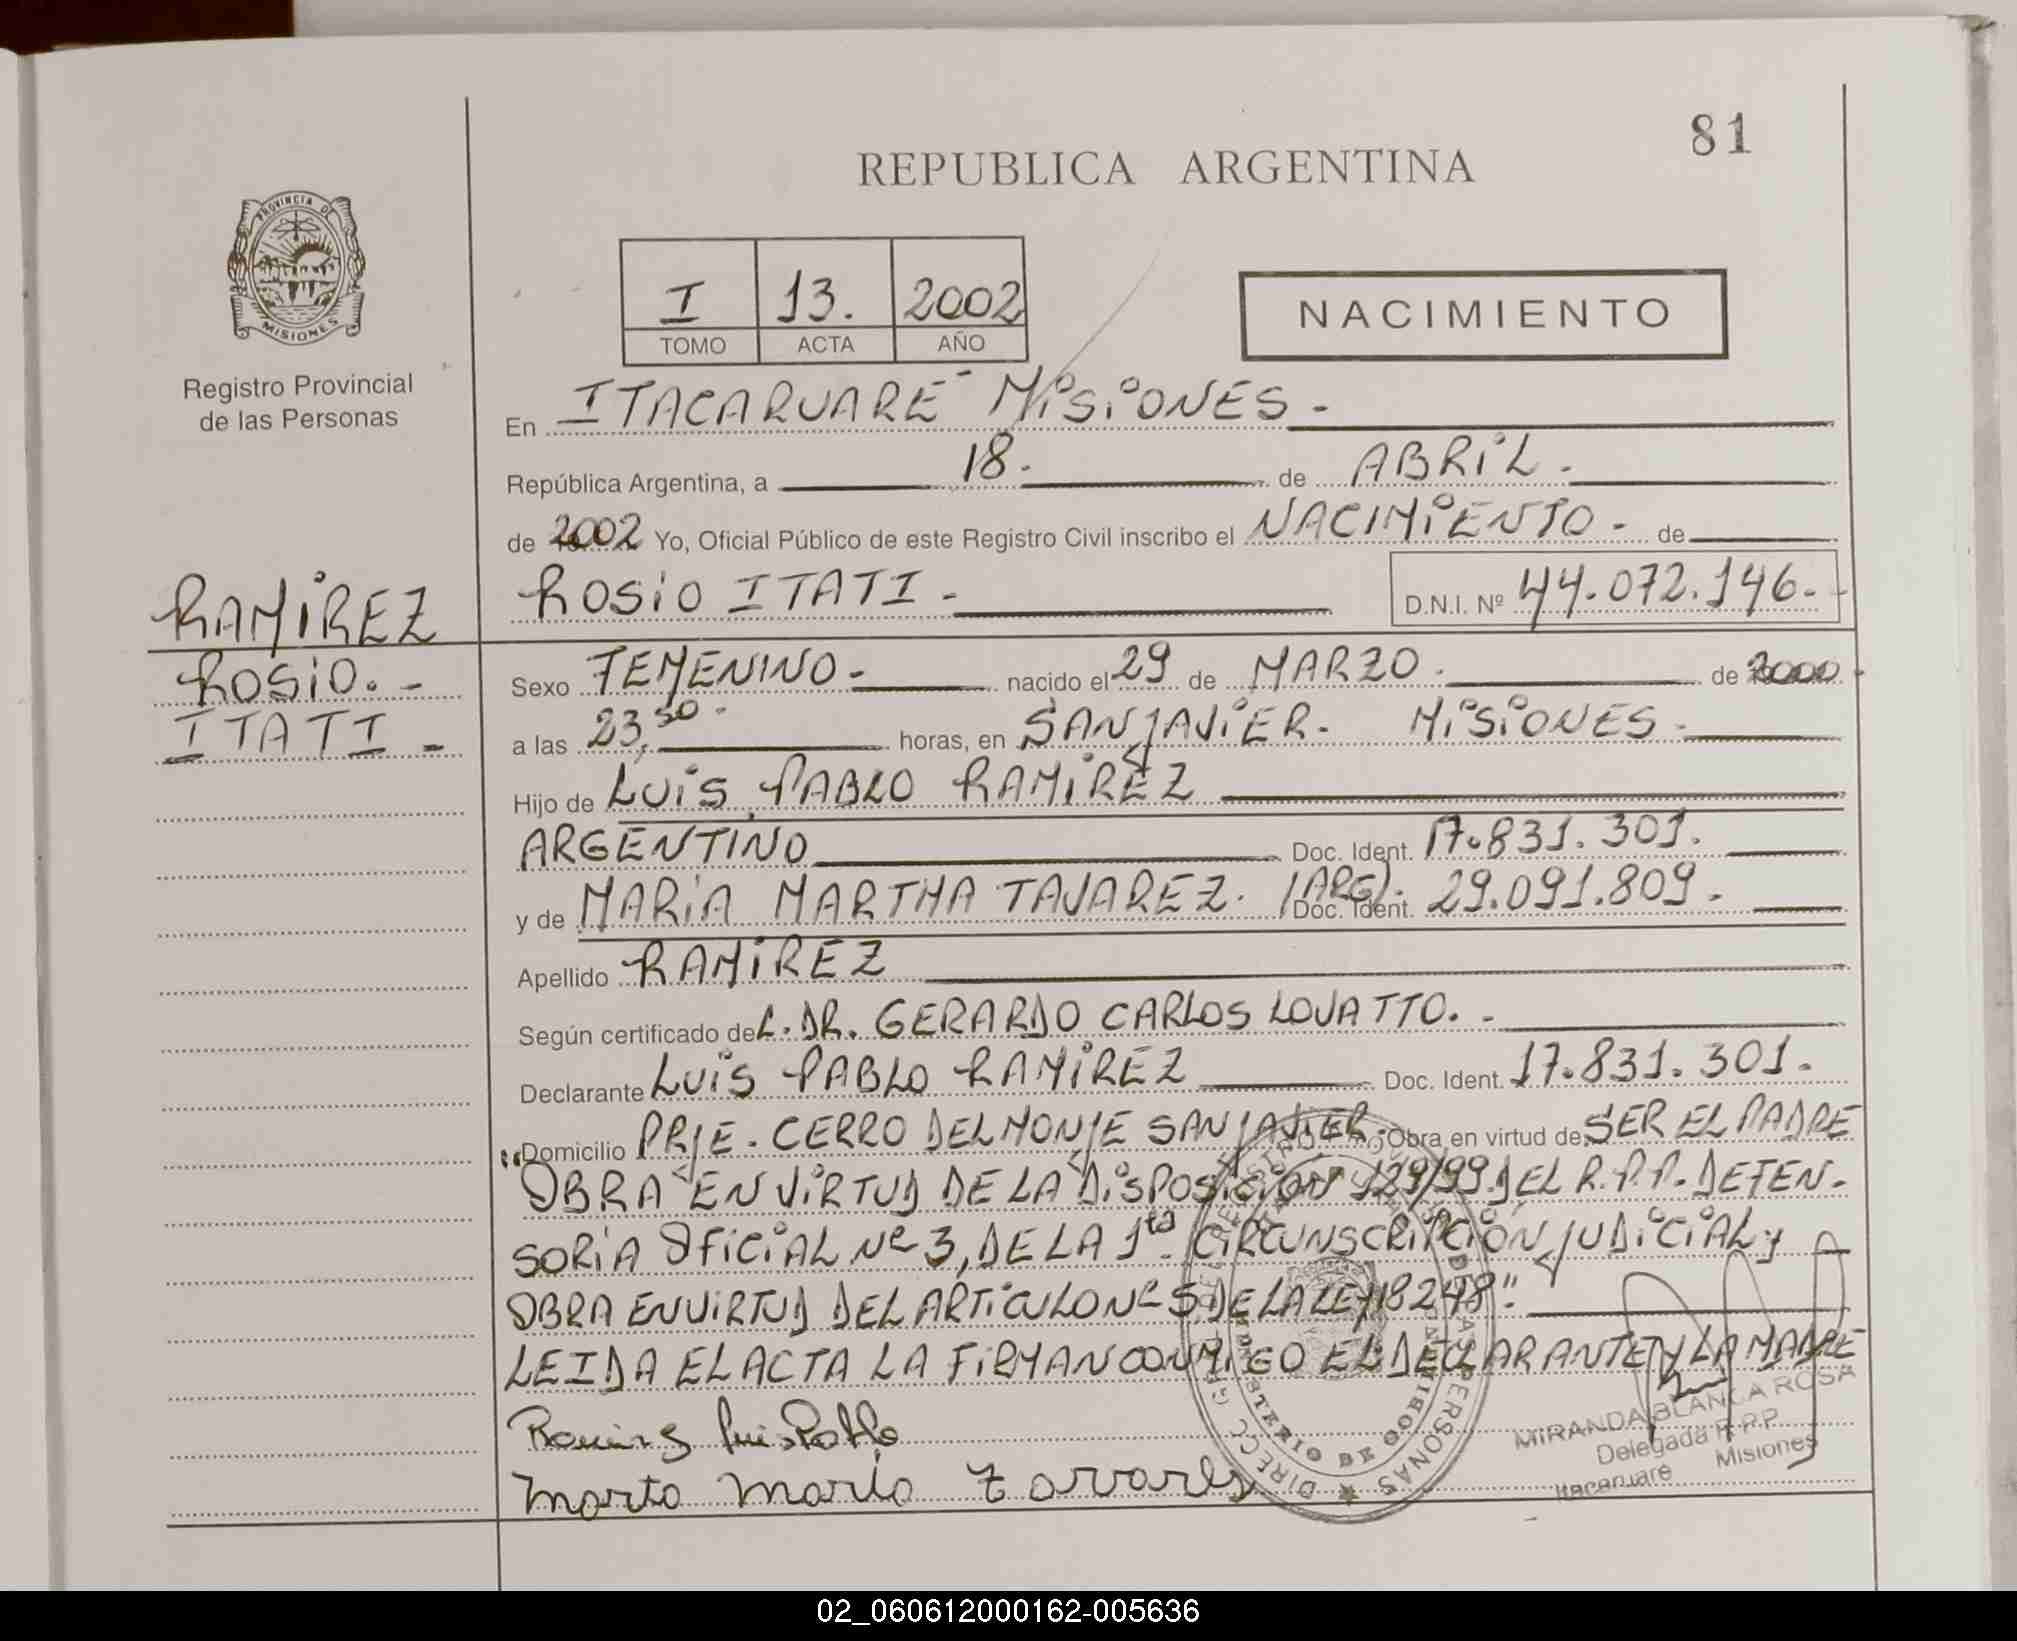 81
REPUBLICA ARGENTINA
PROVINCIA DE
MISIONES
Registro Provincial
de las Personas
I 13. 2002
TOMO ACTA AÑO
NACIMIENTO
En ITACARUARE MISIONES -
República Argentina, a 18. de ABRIL.
de 2002 Yo, Oficial Público de este Registro Civil inscribo el NACIMIENTO - de
ROSIO ITATI - D.N.I. Nº 44.072.146.-
RAMIREZ
ROSIO. -
ITATI -
Sexo FEMENINO - nacido el 29 de MARZO. de 2000 -
a las 23,50 - horas, en SAN JAVIER. MISIONES -
Hijo de LUIS PABLO RAMIREZ
ARGENTINO Doc. Ident. 17.831.301.
y de MARIA MARTHA TAVAREZ. (ARG). Doc. Ident. 29.091.809.
Apellido RAMIREZ
Según certificado de L. DR. GERARDO CARLOS LOVATTO. -
Declarante LUIS PABLO RAMIREZ Doc. Ident. 17.831.301.
Domicilio PRJE. CERRO DEL MONJE SAN JAVIER. Obra en virtud de SER EL PADRE
"OBRA EN VIRTUD DE LA DISPOSICION 129/99. DEL R.P.P. DEFEN-
SORIA OFICIAL Nº 3, DE LA 1ta CIRCUNSCRIPCION JUDICIAL y
OBRA EN VIRTUD DEL ARTICULO Nº 5 DE LA LEY 18248".
LEIDA EL ACTA LA FIRMAN CONMIGO EL DECLARANTE Y LA MADRE
Ramirez Luis Pablo
Marta Maria Tavarez
MIRANDA BLANCA ROSA
Delegada R.P.P.
Itacaruare Misiones
MINISTERIO DE GOBIERNO
02_060612000162-005636